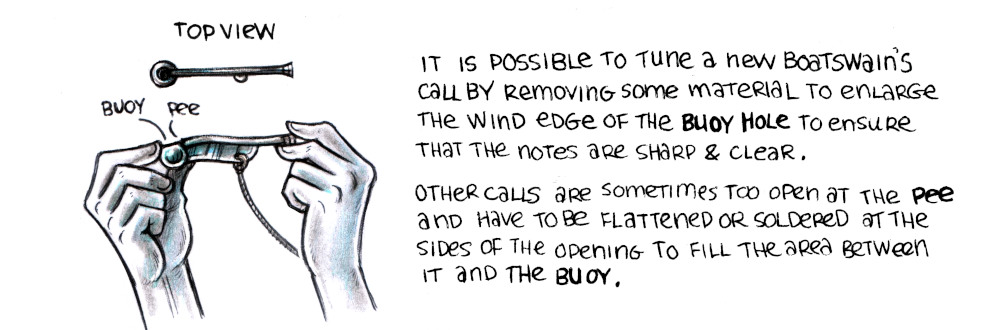 TOP VIEW
BUOY PEE
IT IS POSSIBLE TO TUNE A NEW BOATSWAIN'S
CALL BY REMOVING SOME MATERIAL TO ENLARGE
THE WIND EDGE OF THE BUOY HOLE TO ENSURE
THAT THE NOTES ARE SHARP & CLEAR.
OTHER CALLS ARE SOMETIMES TOO OPEN AT THE PEE
AND HAVE TO BE FLATTENED OR SOLDERED AT THE
SIDES OF THE OPENING TO FILL THE AREA BETWEEN
IT AND THE BUOY.